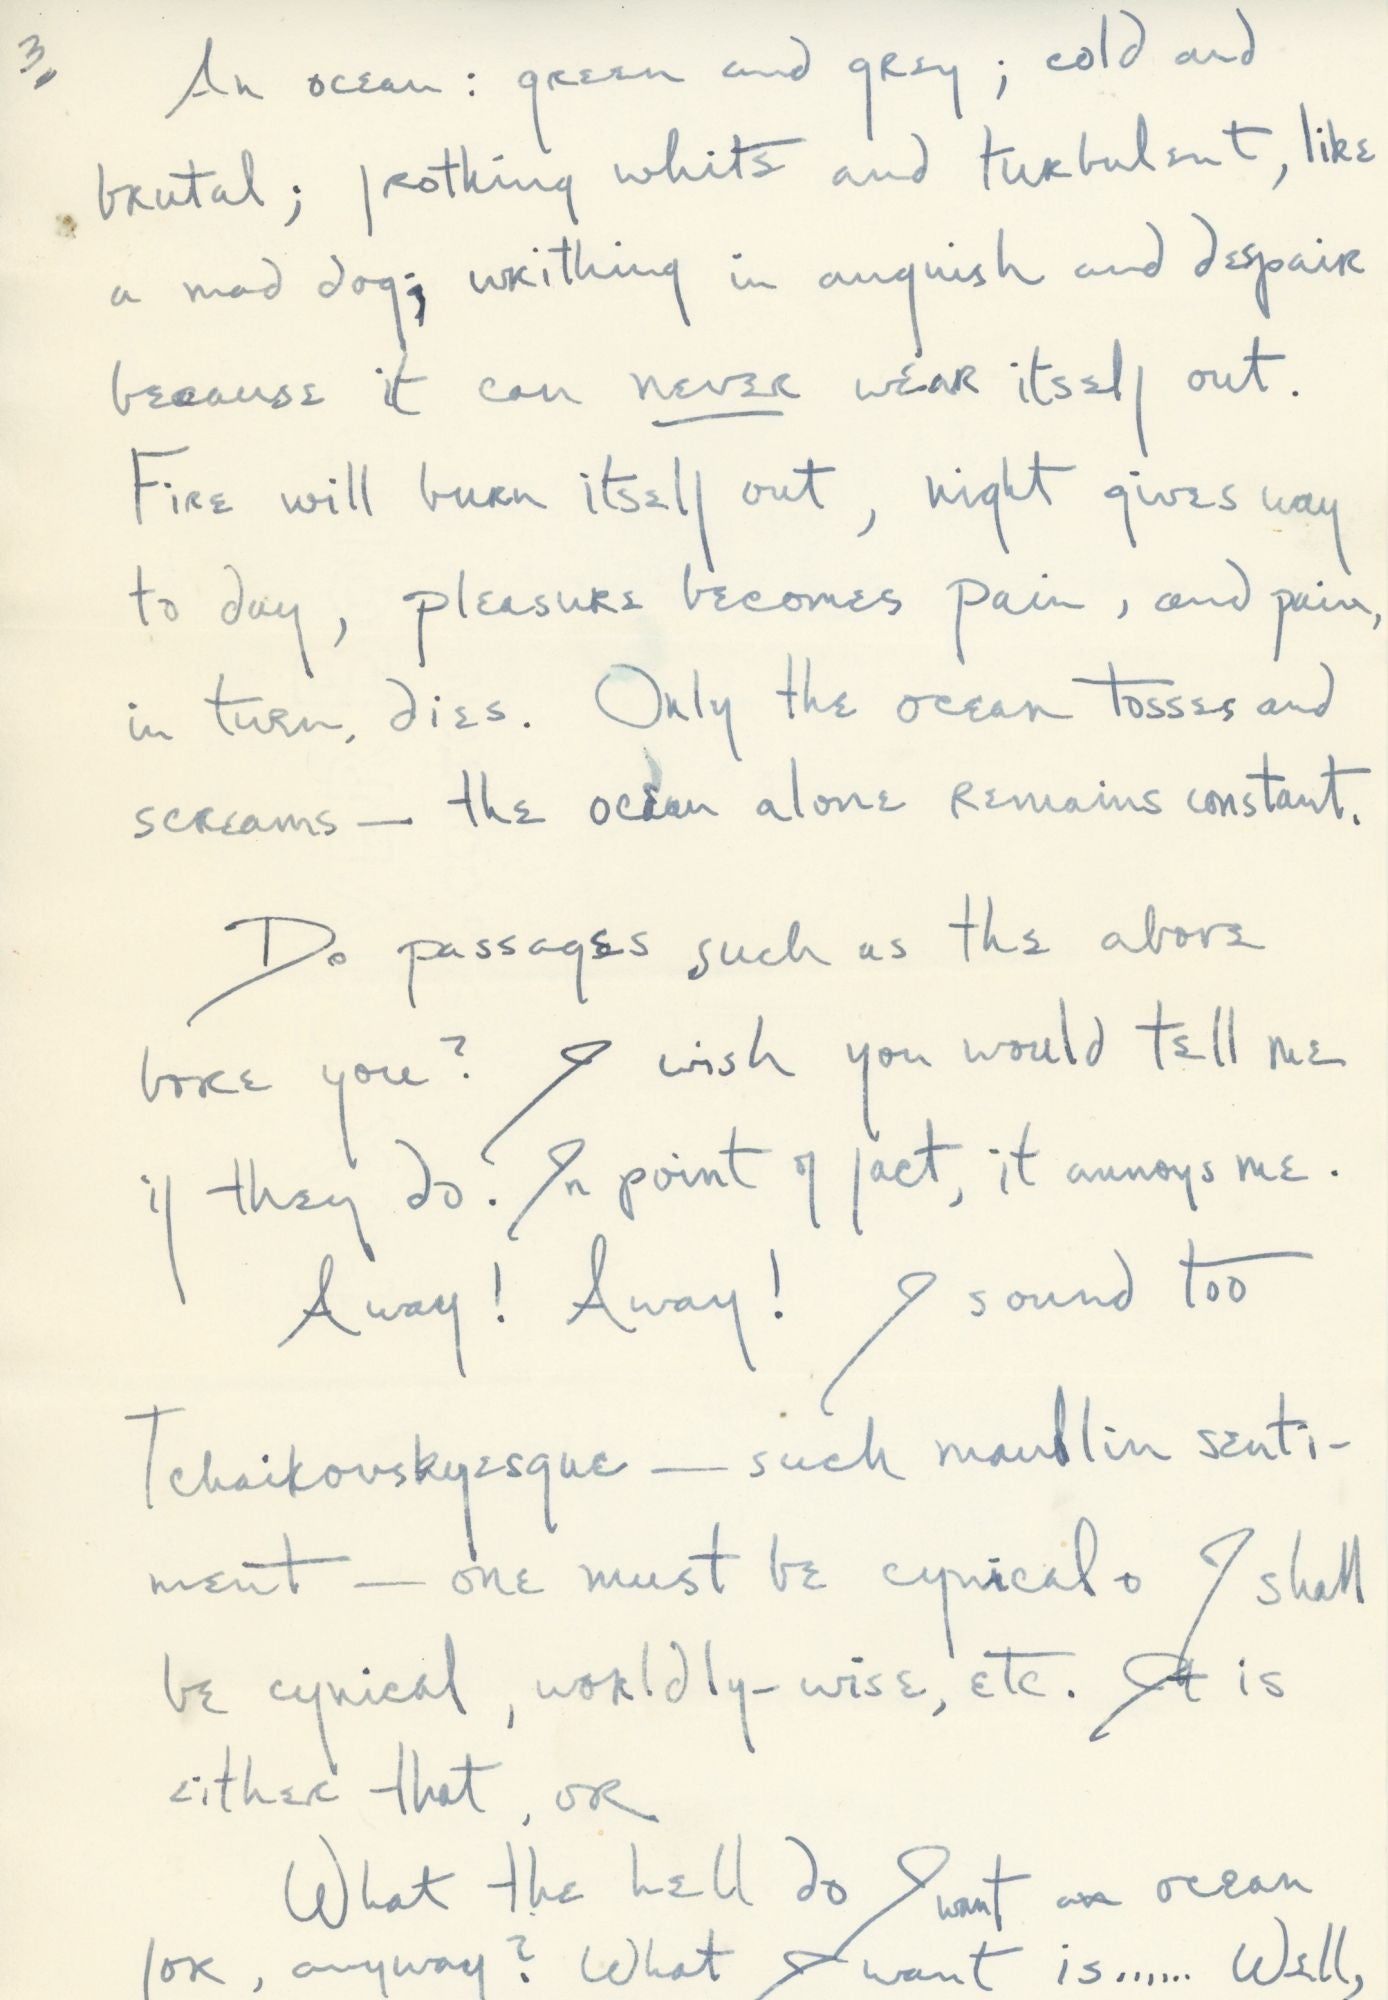 3.
An ocean: green and grey; cold and
brutal; frothing white and turbulent, like
a mad dog; writhing in anguish and despair
because it can never wear itself out.
Fire will burn itself out, night gives way
to day, pleasure becomes pain, and pain,
in turn, dies. Only the ocean tosses and
screams — the ocean alone remains constant.
Do passages such as the above
bore you? I wish you would tell me
if they do. In point of fact, it annoys me.
Away! Away! I sound too
Tchaikovskyesque — such maudlin senti-
ment — one must be cynical. I shall
be cynical, worldly-wise, etc. It is
either that, or
What the hell do I want an ocean
for, anyway? What I want is...... Well,